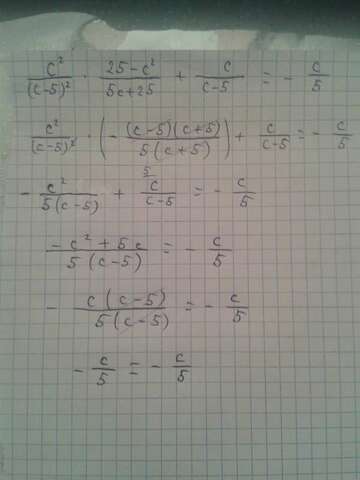 c²/(c-5)² · 25-c²/5c+25 + c/c-5 = - c/5
c²/(c-5)² · (- (c-5)(c+5)/5(c+5)) + c/c-5 = - c/5
- c²/5(c-5) + 5 c/c-5 = - c/5
-c²+5c/5(c-5) = - c/5
- c(c-5)/5(c-5) = - c/5
- c/5 = - c/5